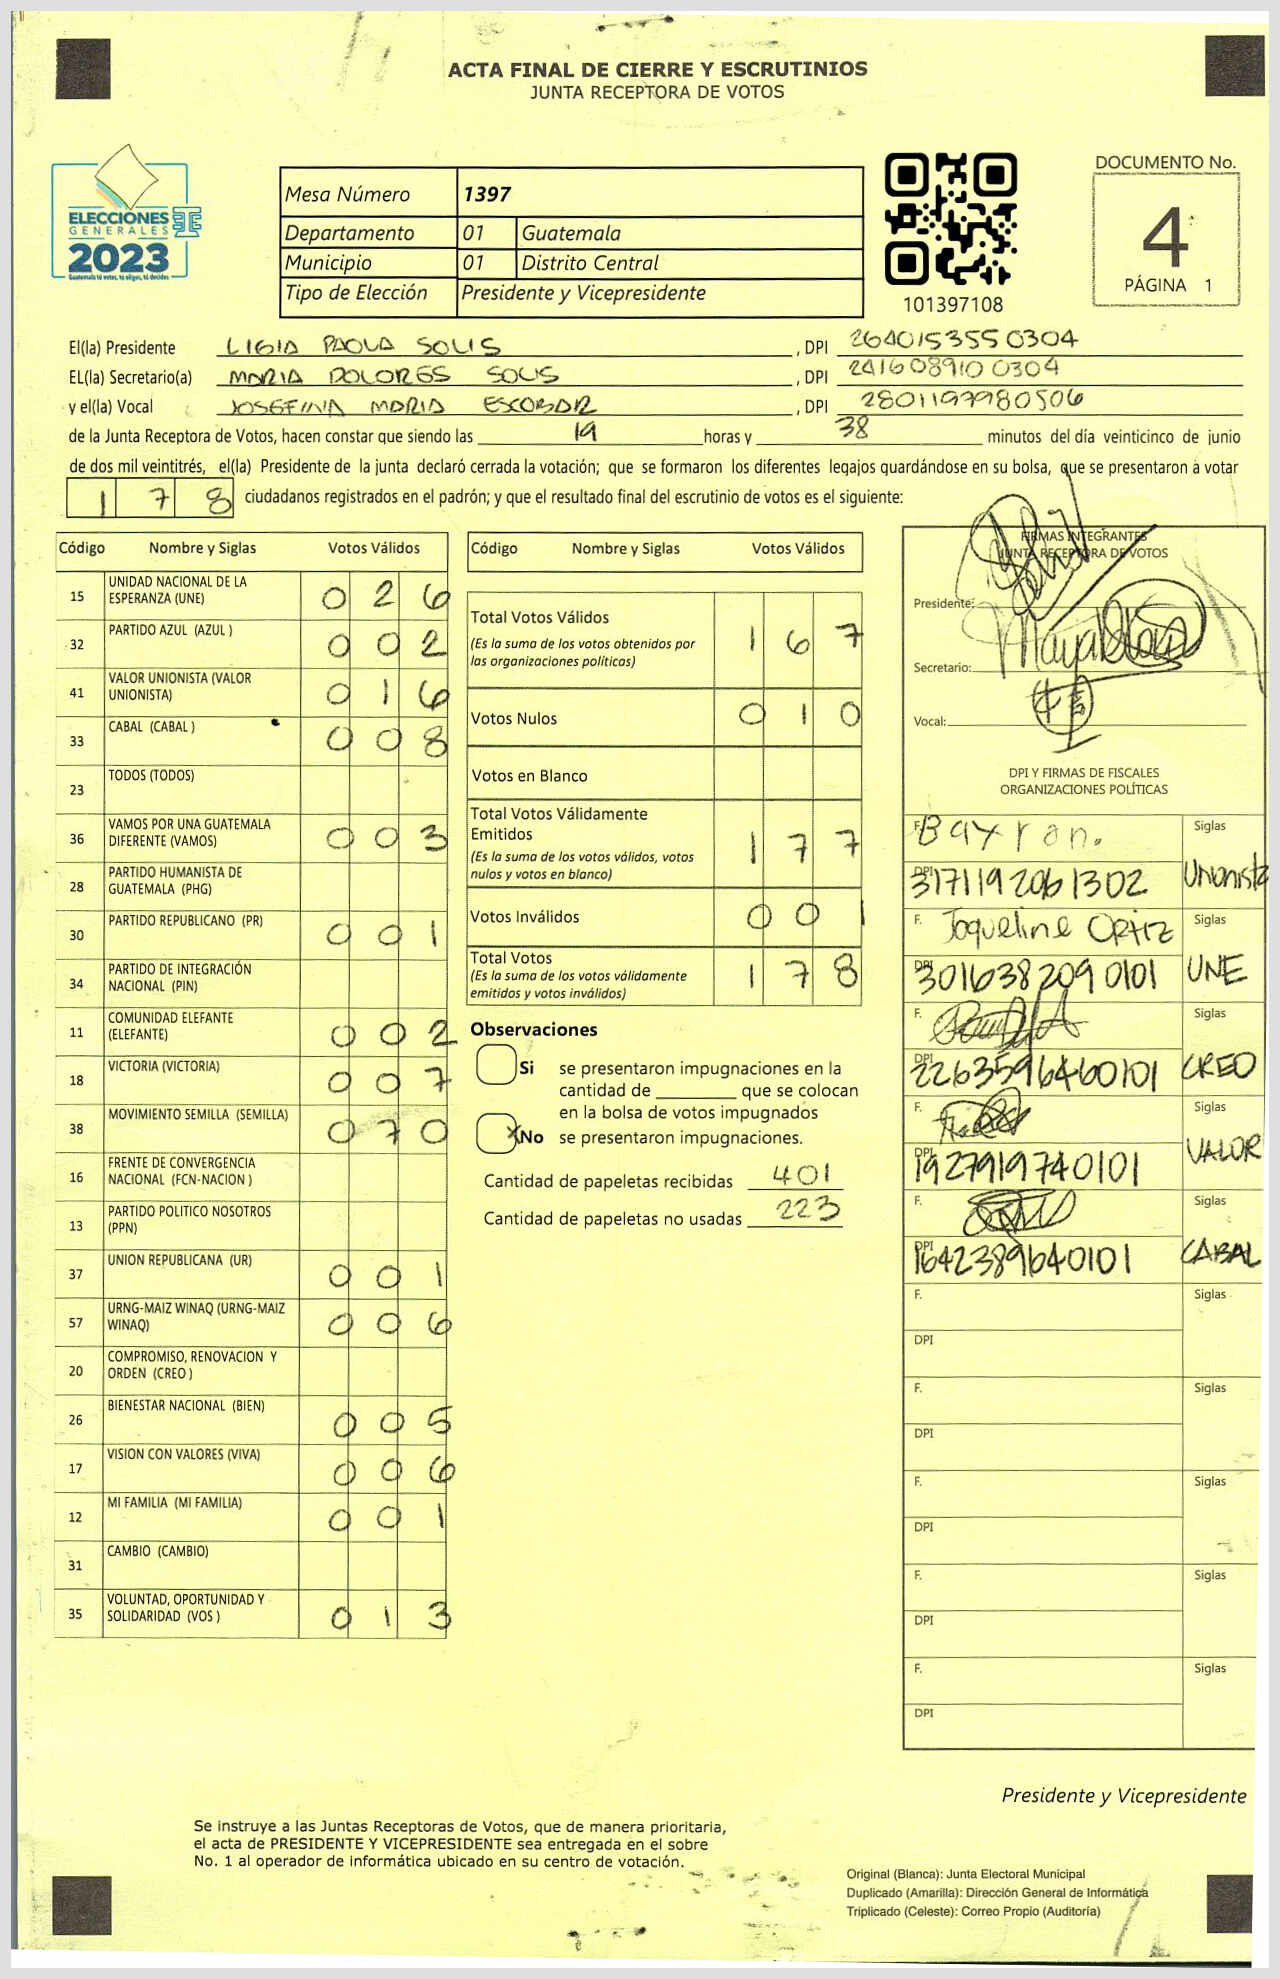 ACTA FINAL DE CIERRE Y ESCRUTINIOS
JUNTA RECEPTORA DE VOTOS
ELECCIONES
GENERALES
2023
Guatemala tú votas, tú eliges, tú decides
Mesa Número 1397
Departamento 01 Guatemala
Municipio 01 Distrito Central
Tipo de Elección Presidente y Vicepresidente
101397108
DOCUMENTO No.
4
PÁGINA 1
El(la) Presidente LIGIA PAOLA SOLIS , DPI 2640153550304
EL(la) Secretario(a) MARIA DOLORES SOLIS , DPI 2416089100304
y el(la) Vocal JOSEFINA MARIA ESCOBAR , DPI 2801197980506
de la Junta Receptora de Votos, hacen constar que siendo las 19 horas y 38 minutos del día veinticinco de junio
de dos mil veintitrés, el(la) Presidente de la junta declaró cerrada la votación; que se formaron los diferentes legajos guardándose en su bolsa, que se presentaron a votar
178 ciudadanos registrados en el padrón; y que el resultado final del escrutinio de votos es el siguiente:
Código Nombre y Siglas Votos Válidos
15 UNIDAD NACIONAL DE LA
ESPERANZA (UNE) 0 2 6
32 PARTIDO AZUL (AZUL ) 0 0 2
41 VALOR UNIONISTA (VALOR
UNIONISTA) 0 1 6
33 CABAL (CABAL ) 0 0 8
23 TODOS (TODOS)
36 VAMOS POR UNA GUATEMALA
DIFERENTE (VAMOS) 0 0 3
28 PARTIDO HUMANISTA DE
GUATEMALA (PHG)
30 PARTIDO REPUBLICANO (PR) 0 0 1
34 PARTIDO DE INTEGRACIÓN
NACIONAL (PIN)
11 COMUNIDAD ELEFANTE
(ELEFANTE) 0 0 2
18 VICTORIA (VICTORIA) 0 0 7
38 MOVIMIENTO SEMILLA (SEMILLA) 0 7 0
16 FRENTE DE CONVERGENCIA
NACIONAL (FCN-NACION )
13 PARTIDO POLITICO NOSOTROS
(PPN)
37 UNION REPUBLICANA (UR) 0 0 1
57 URNG-MAIZ WINAQ (URNG-MAIZ
WINAQ) 0 0 6
20 COMPROMISO, RENOVACION Y
ORDEN (CREO )
26 BIENESTAR NACIONAL (BIEN) 0 0 5
17 VISION CON VALORES (VIVA) 0 0 6
12 MI FAMILIA (MI FAMILIA) 0 0 1
31 CAMBIO (CAMBIO)
35 VOLUNTAD, OPORTUNIDAD Y
SOLIDARIDAD (VOS ) 0 1 3
Código Nombre y Siglas Votos Válidos
Total Votos Válidos 1 6 7
(Es la suma de los votos obtenidos por
las organizaciones políticas)
Votos Nulos 0 1 0
Votos en Blanco
Total Votos Válidamente
Emitidos 1 7 7
(Es la suma de los votos válidos, votos
nulos y votos en blanco)
Votos Inválidos 0 0 1
Total Votos 1 7 8
(Es la suma de los votos válidamente
emitidos y votos inválidos)
Observaciones
Si se presentaron impugnaciones en la
cantidad de ________ que se colocan
en la bolsa de votos impugnados
X No se presentaron impugnaciones.
Cantidad de papeletas recibidas 401
Cantidad de papeletas no usadas 223
FIRMAS INTEGRANTES
JUNTA RECEPTORA DE VOTOS
Presidente:
Secretario:
Vocal:
DPI Y FIRMAS DE FISCALES
ORGANIZACIONES POLÍTICAS
F. Bayron. Siglas
DPI 3171192061302 Unionista
F. Jaqueline Ortiz Siglas
DPI 3016382090101 UNE
F. Siglas
DPI 2263596460101 CREO
F. Siglas
DPI 1927919740101 VALOR
F. Siglas
DPI 1642389640101 CABAL
F. Siglas
DPI
F. Siglas
DPI
F. Siglas
DPI
F. Siglas
DPI
F. Siglas
DPI
Presidente y Vicepresidente
Se instruye a las Juntas Receptoras de Votos, que de manera prioritaria,
el acta de PRESIDENTE Y VICEPRESIDENTE sea entregada en el sobre
No. 1 al operador de informática ubicado en su centro de votación.
Original (Blanca): Junta Electoral Municipal
Duplicado (Amarilla): Dirección General de Informática
Triplicado (Celeste): Correo Propio (Auditoría)